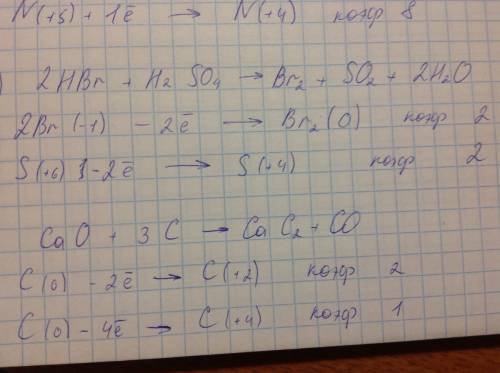 N(+5) + 1ē → N(+4) коэф 8
) 2HBr + H2SO4 → Br2 + SO2 + 2H2O
2Br(-1) - 2ē → Br2(0) коэф 2
S(+6) - 2ē → S(+4) коэф 2
CaO + 3C → CaC2 + CO
C(0) - 2ē → C(+2) коэф 2
C(0) - 4ē → C(+4) коэф 1